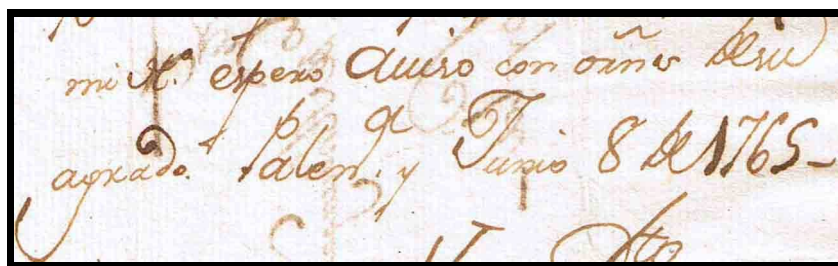 mi Sr. espero Auiso con orñes de su
agrado. Palen.ª y Junio 8 de 1765-